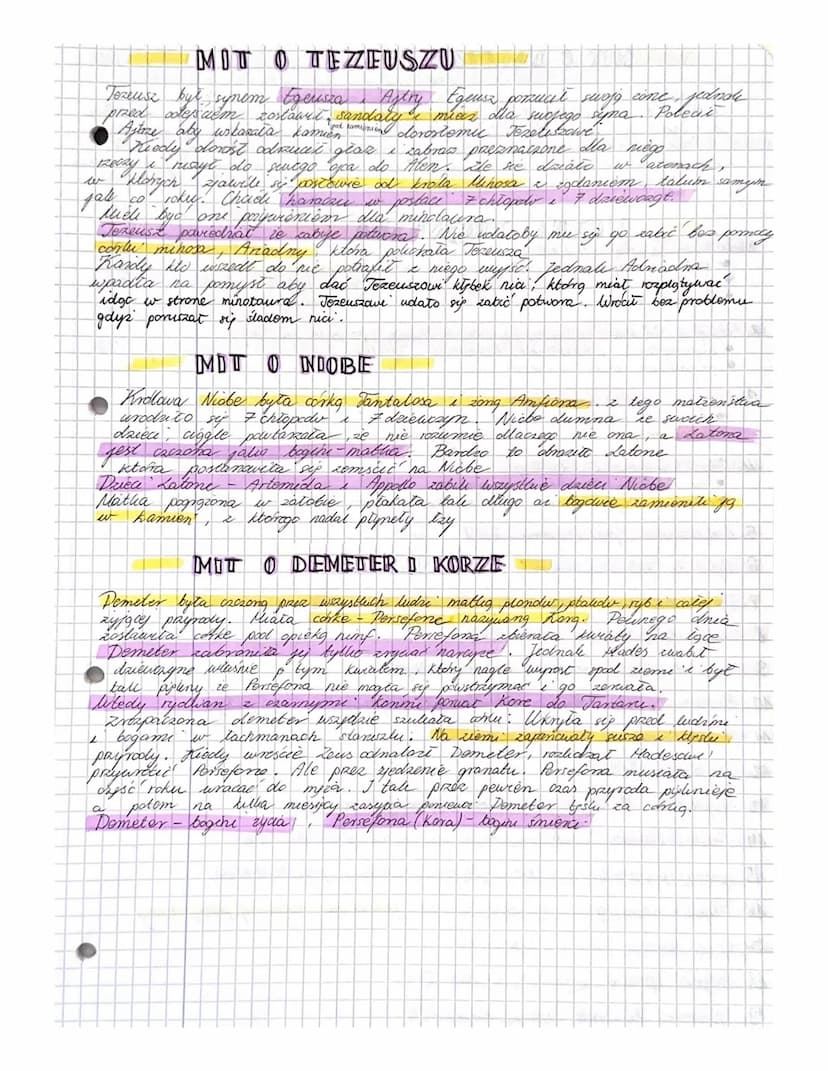 MIT O TEZEUSZU
Tezeusz był synem Egeusza i Ajtry Egeusz porzucił swoją żonę, jednak
przed odejściem zostawił sandały i miecz dla swojego syna. Polecił
pod kamieniem
Ajtrze aby wskazała kamień dorosłemu Tezeuszowi.
Kiedy dorósł odrzucił głaz i zabrał przeznaczone dla niego
rzeczy i ruszył do swego ojca do Aten. Źle się działo w atenach,
w których zjawili się posłowie od króla Minosa z żądaniem takim samym
jak co roku. Chcieli haraczu w postaci 7 chłopców i 7 dziewcząt.
Mieli być one pożywieniem dla minotaura.
Tezeusz powiedział że zabije potwora. Nie udałoby mu się go zabić bez pomocy
córki minosa, Ariadny, która pokochała Tezeusza
Każdy kto wszedł do nie potrafił z niego wyjść. Jednak Adriadna
wpadła na pomysł aby dać Tezeuszowi kłębek nici, którą miał rozplątywać
idąc w stronę minotaura. Tezeuszowi udało się zabić potwora. Wrócił bez problemu
gdyż poruszał się śladem nici.
MIT O NIOBE
Królowa Niobe była córką Tantalosa i żoną Amfiona. z tego małżeństwa
urodziło się 7 chłopców i 7 dziewczyn. Niobe dumna ze swoich
dzieci ciągle powtarzała, że nie rozumie dlaczego nie ona, a Latona
jest czczona jako bogini-matka. Bardzo to obraziło Latone
która postanowiła się zemścić na Niobe
Dzieci Latone - Artemida i Appollo zabili wszystkie dzieci Niobe
Matka pogrążona w żałobie, płakała tak długo aż bogowie zamienili ją
w kamień, z którego nadal płynęły łzy
MIT O DEMETER I KORZE
Demeter była czczona przez wszystkich ludzi matką plonów, ptaków, ryb i całej
żyjącej przyrody. Miała córkę - Persefonę nazywaną Korą. Pewnego dnia
zostawiła córkę pod opieką nimf. Persefona zbierała kwiaty na łące
Demeter zabroniła jej tylko zrywać narcyze. Jednak Hades zwabił
dziewczynę właśnie tym kwiatem, który nagle wyrósł spod ziemi i był
tak piękny że Persefona nie mogła się powstrzymać i go zerwała.
Wtedy rydwan z czarnymi końmi porwał Korę do Tartaru.
Zrozpaczona demeter wszędzie szukała córki. Ukryła się przed ludźmi
i bogami w łachmanach staruszki. Na ziemi zapanowały susza i klęski
przyrody. Kiedy wreście Zeus odnalazł Demeter, rozkazał Hadesowi
przywrócić Persefonę. Ale przez zjedzenie granatu. Persefona musiała na
część roku wracać do męża. I tak przez pewien czas przyroda pięknieje
a potom na kilka miesięcy zasypia ponieważ Demeter tęskni za córką.
Demeter - bogini życia, Persefona (Kora) - bogini śmierci.